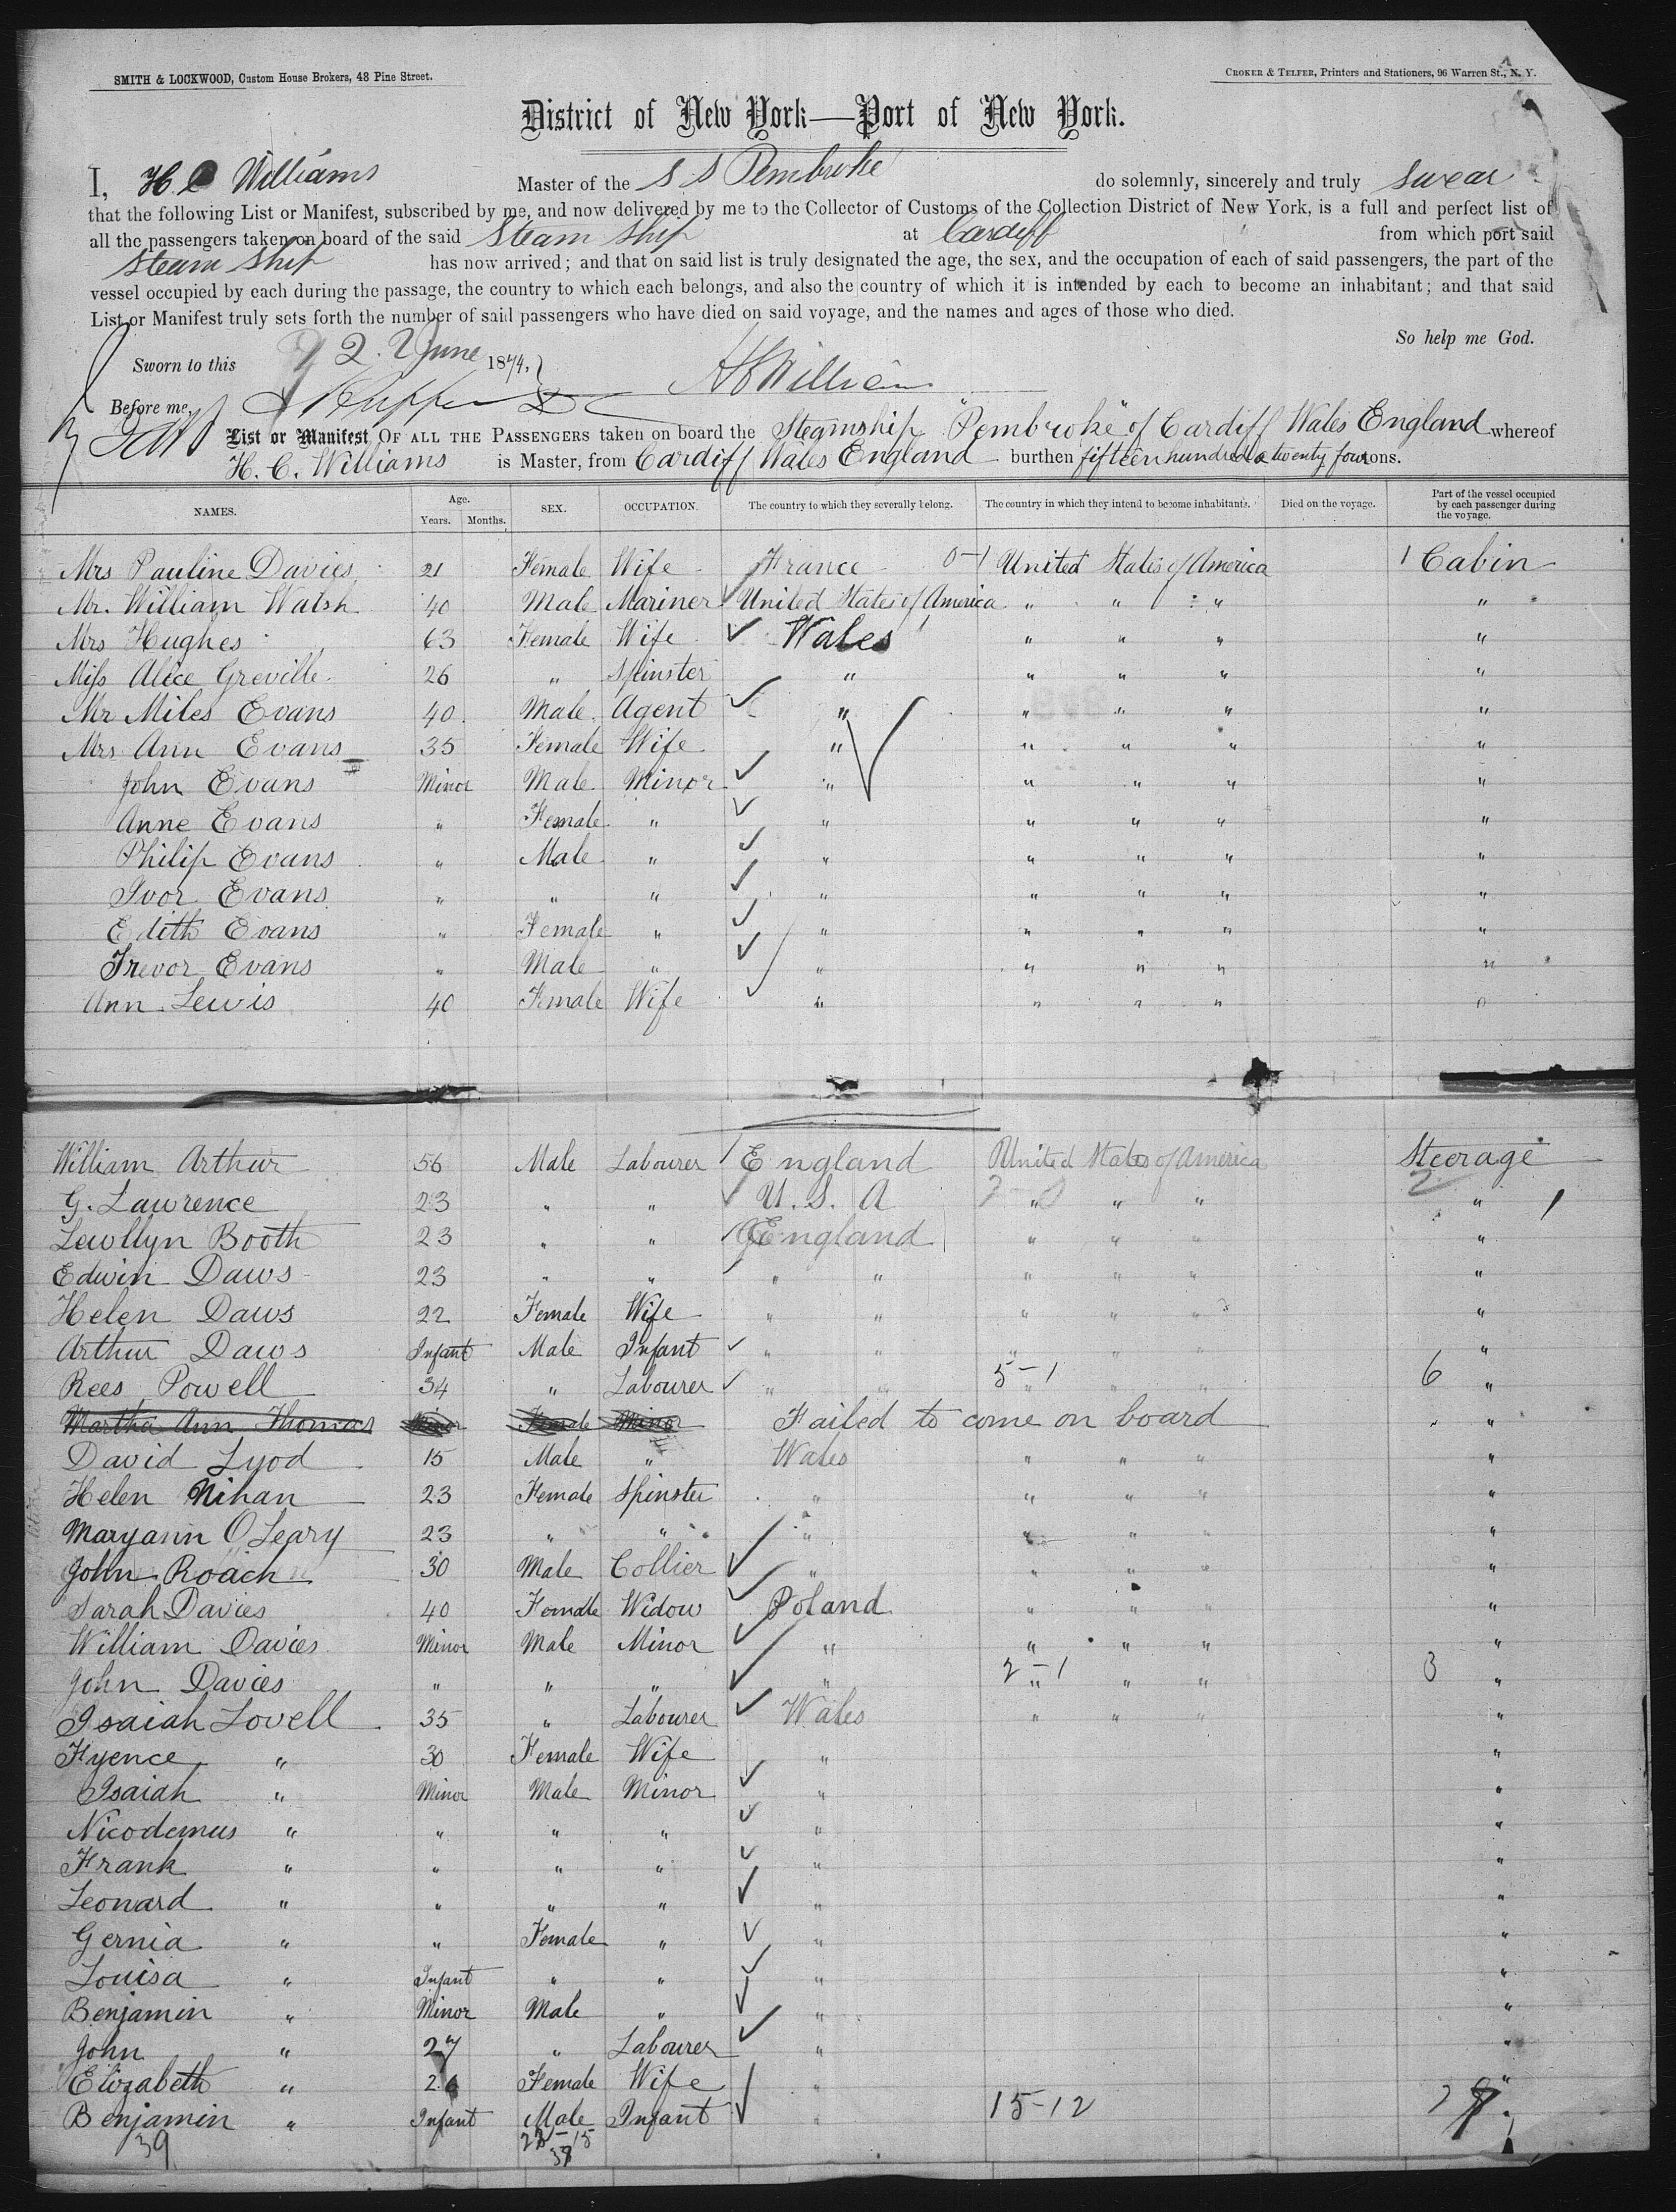 SMITH & LOCKWOOD, Custom House Brokers, 48 Pine Street.
CROKER & TELFER, Printers and Stationers, 96 Warren St., N. Y.
District of New York—Port of New York.
I, H C Williams Master of the S S Pembroke do solemnly, sincerely and truly swear
that the following List or Manifest, subscribed by me, and now delivered by me to the Collector of Customs of the Collection District of New York, is a full and perfect list of
all the passengers taken on board of the said Steam Ship at Cardiff from which port said
Steam Ship has now arrived; and that on said list is truly designated the age, the sex, and the occupation of each of said passengers, the part of the
vessel occupied by each during the passage, the country to which each belongs, and also the country of which it is intended by each to become an inhabitant; and that said
List or Manifest truly sets forth the number of said passengers who have died on said voyage, and the names and ages of those who died.
So help me God.
Sworn to this 22 June 1874,
H C Williams
Before me,
List or Manifest OF ALL THE PASSENGERS taken on board the Steamship "Pembroke" of Cardiff Wales England whereof
H. C. Williams is Master, from Cardiff Wales England burthen fifteen hundred & twenty four tons.
NAMES. Age. Years. Months. SEX. OCCUPATION. The country to which they severally belong. The country in which they intend to become inhabitants. Died on the voyage. Part of the vessel occupied by each passenger during the voyage.
Mrs Pauline Davies 21 Female Wife France 0-1 United States of America 1 Cabin
Mr. William Walsh 40 Male Mariner United States of America " " " "
Mrs Hughes 63 Female Wife Wales " " " "
Miss Alice Greville 26 " Spinster " " " " "
Mr Miles Evans 40 Male Agent " " " " "
Mrs Ann Evans 35 Female Wife " " " " "
John Evans Minor Male Minor " " " " "
Anne Evans " Female " " " " " "
Philip Evans " Male " " " " " "
Ivor Evans " " " " " " " "
Edith Evans " Female " " " " " "
Trevor Evans " Male " " " " " "
Ann Lewis 40 Female Wife " " " " "
William Arthur 56 Male Labourer England United States of America Steerage
G. Lawrence 23 " " U. S. A " " " 2 "
Lewllyn Booth 23 " " England " " " "
Edwin Daws 23 " " " " " " " "
Helen Daws 22 Female Wife " " " " " "
Arthur Daws Infant Male Infant " " " " " "
Rees Powell 34 " Labourer " " 5-1 " " " 6 "
Martha Ann Thomas Minor Female Minor Failed to come on board "
David Lyod 15 Male " Wales " " " "
Helen Nihan 23 Female Spinster " " " " "
Maryann O'Leary 23 " " " " " " "
John Roach 30 Male Collier " " " " "
Sarah Davies 40 Female Widow Poland " " " "
William Davies Minor Male Minor " " " " "
John Davies " " " " 2-1 " " " 3 "
Isaiah Lovell 35 " Labourer Wales " " " "
Fyence " 30 Female Wife " "
Isaiah " Minor Male Minor " "
Nicodemus " " " " " "
Frank " " " " " "
Leonard " " " " " "
Gernia " " Female " " "
Louisa " Infant " " " "
Benjamin " Minor Male " " "
John " 27 " Labourer " "
Elizabeth " 26 Female Wife " "
Benjamin " Infant Male Infant " 15-12 "
39
23-15